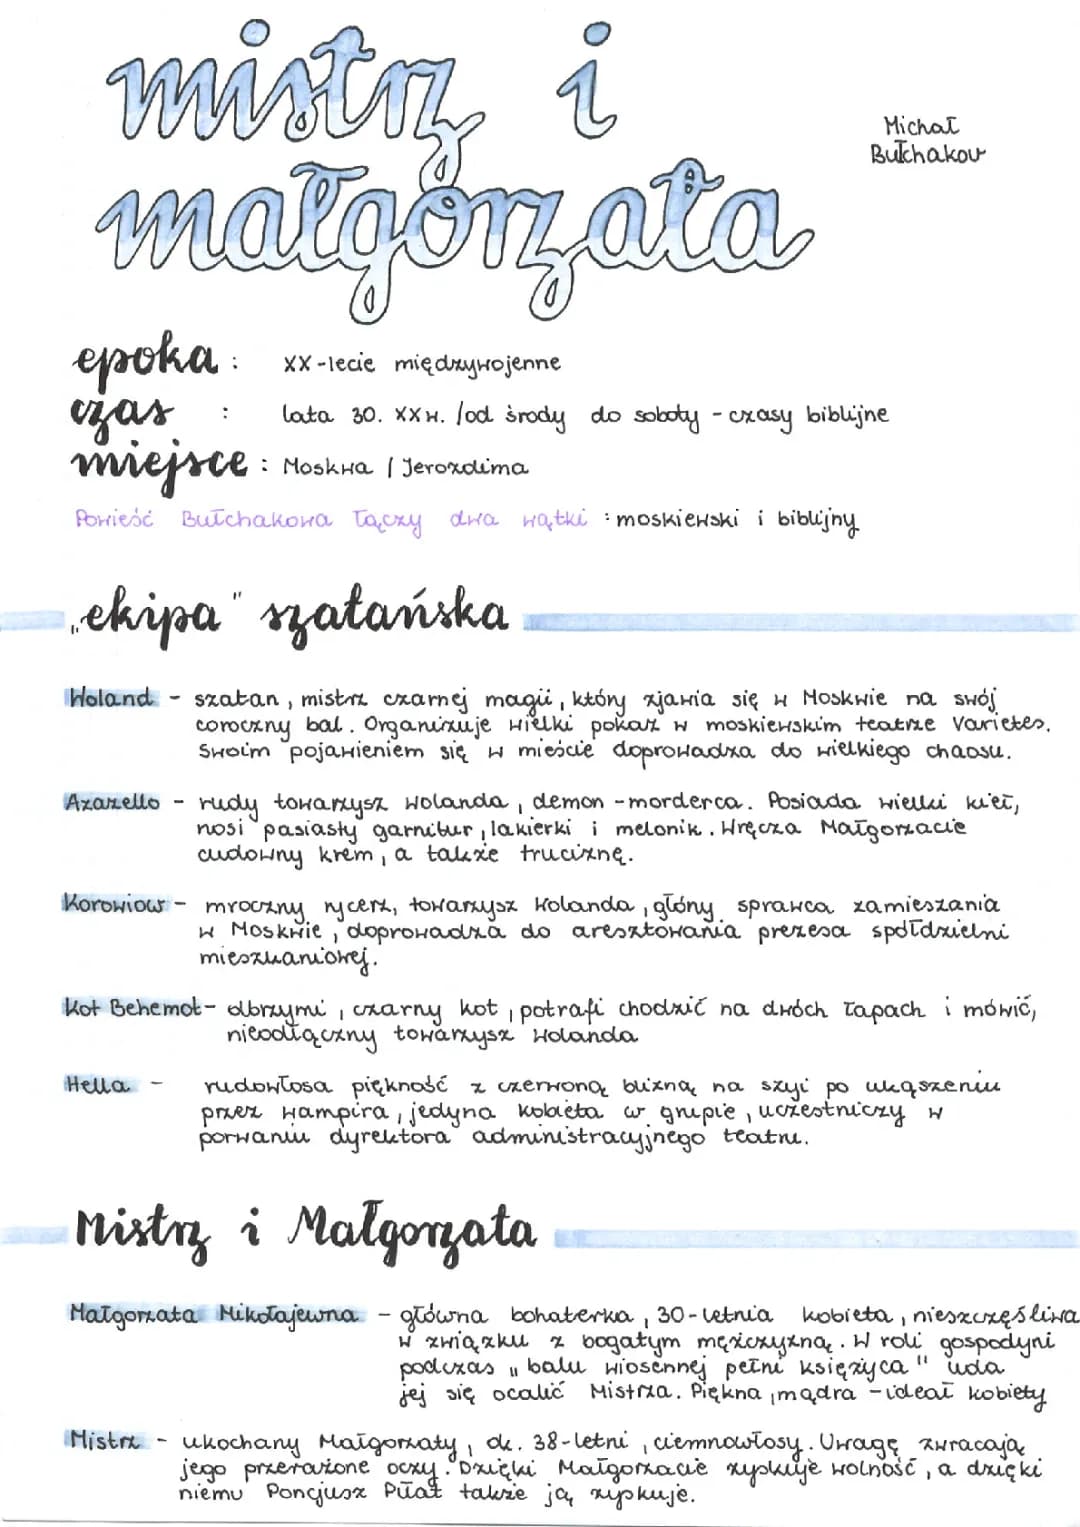 mistrz i
małgorzata
Michał
Bułhakow
epoka : XX-lecie międzywojenne
czas : lata 30. XXw. /od środy do soboty - czasy biblijne
miejsce : Moskwa / Jerozolima
Powieść Bułchakowa łączy dwa wątki : moskiewski i biblijny
„ekipa" szatańska
Woland - szatan, mistrz czarnej magii, który zjawia się w Moskwie na swój
coroczny bal. Organizuje wielki pokaz w moskiewskim teatrze Varietes.
Swoim pojawieniem się w mieście doprowadza do wielkiego chaosu.
Azazello - rudy towarzysz Wolanda, demon-morderca. Posiada wielki kieł,
nosi pasiasty garnitur, lakierki i melonik. Wręcza Małgorzacie
cudowny krem, a także truciznę.
Korowiow - mroczny rycerz, towarzysz Wolanda, główny sprawca zamieszania
w Moskwie, doprowadza do aresztowania prezesa spółdzielni
mieszkaniowej.
Kot Behemot - olbrzymi, czarny kot, potrafi chodzić na dwóch łapach i mówić,
nieodłączny towarzysz Wolanda
Hella - rudowłosa piękność z czerwoną blizną na szyi po ukąszeniu
przez wampira, jedyna kobieta w grupie, uczestniczy w
porwaniu dyrektora administracyjnego teatru.
Mistrz i Małgorzata
Małgorzata Mikołajewna - główna bohaterka, 30-letnia kobieta, nieszczęśliwa
w związku z bogatym mężczyzną. W roli gospodyni
podczas „balu wiosennej pełni księżyca" uda
jej się ocalić Mistrza. Piękna, mądra - ideał kobiety
Mistrz - ukochany Małgorzaty, ok. 38-letni, ciemnowłosy. Uwagę zwracają
jego przerażone oczy. Dzięki Małgorzacie zyskuje wolność, a dzięki
niemu Poncjusz Piłat także ją zyskuje.